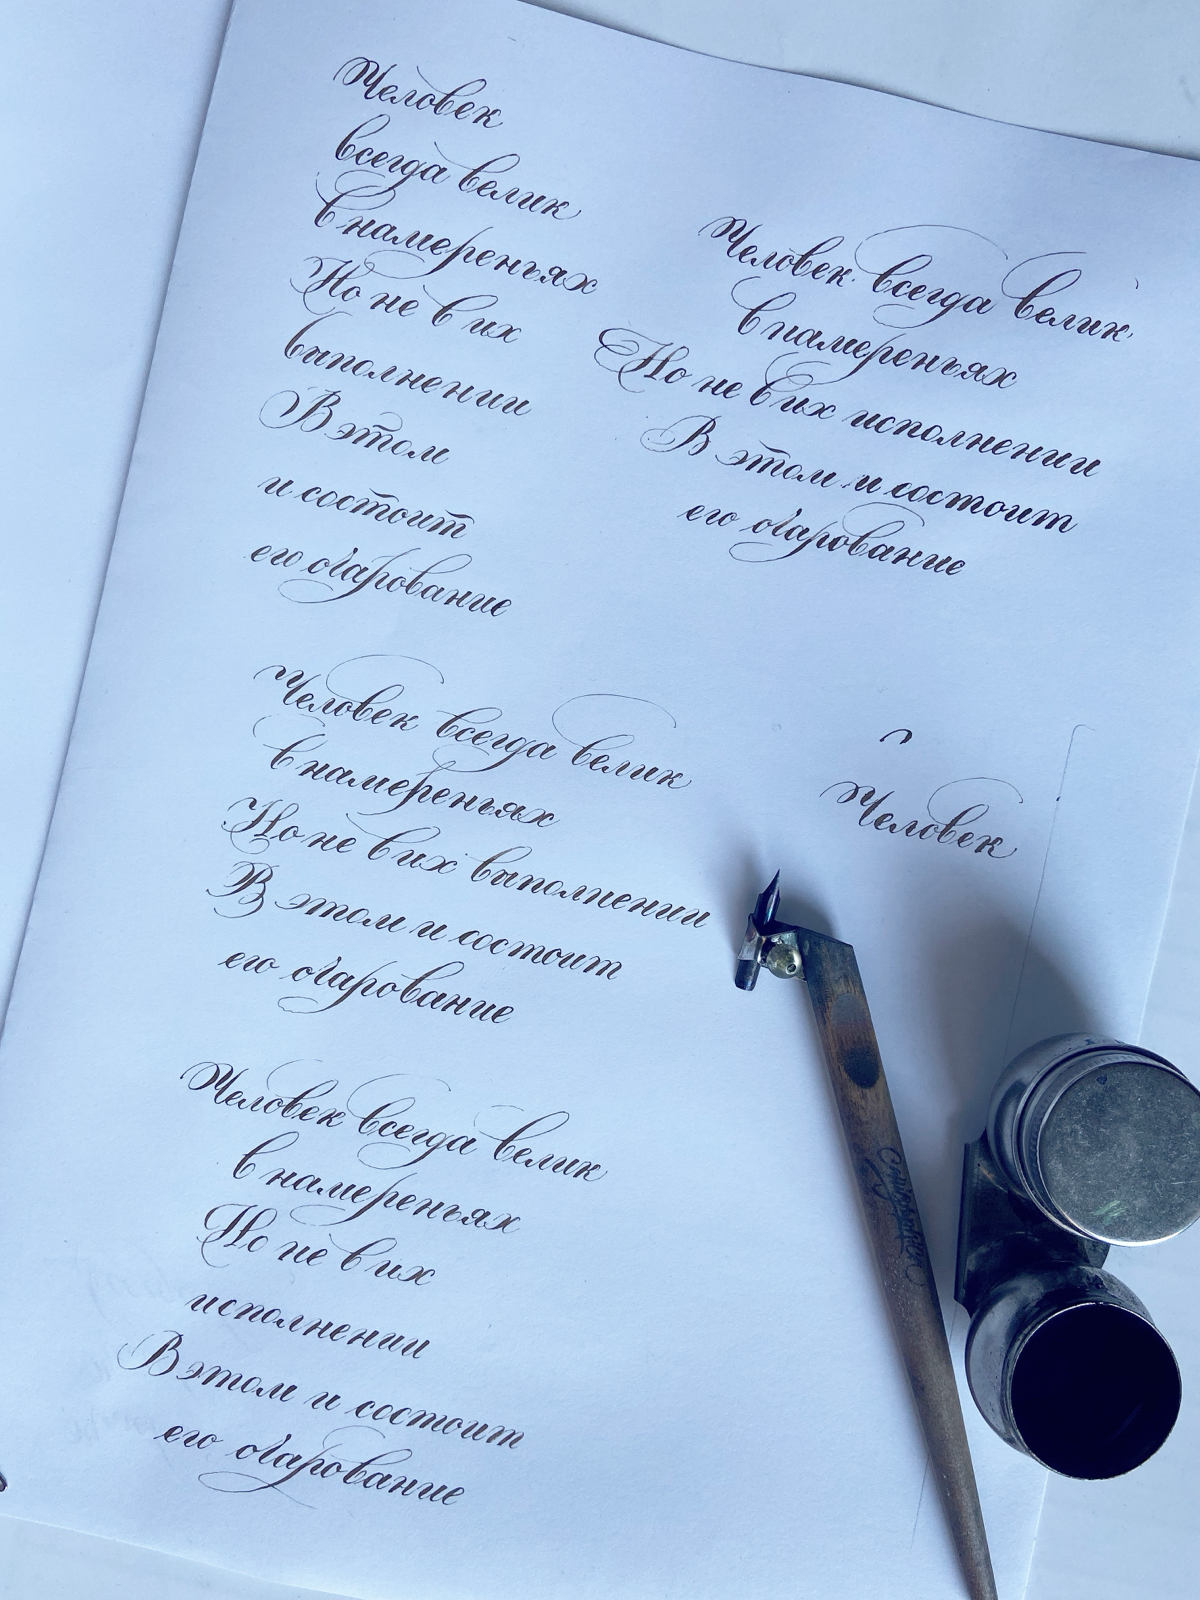 Человек
всегда велик
в намереньях
Но не в их
выполнении
В этом
и состоит
его очарование
Человек всегда велик
в намереньях
Но не в их исполнении
В этом и состоит
его очарование
Человек всегда велик
в намереньях
Но не в их выполнении
В этом и состоит
его очарование
Человек
Человек всегда велик
в намереньях
Но не в их
исполнении
В этом и состоит
его очарование